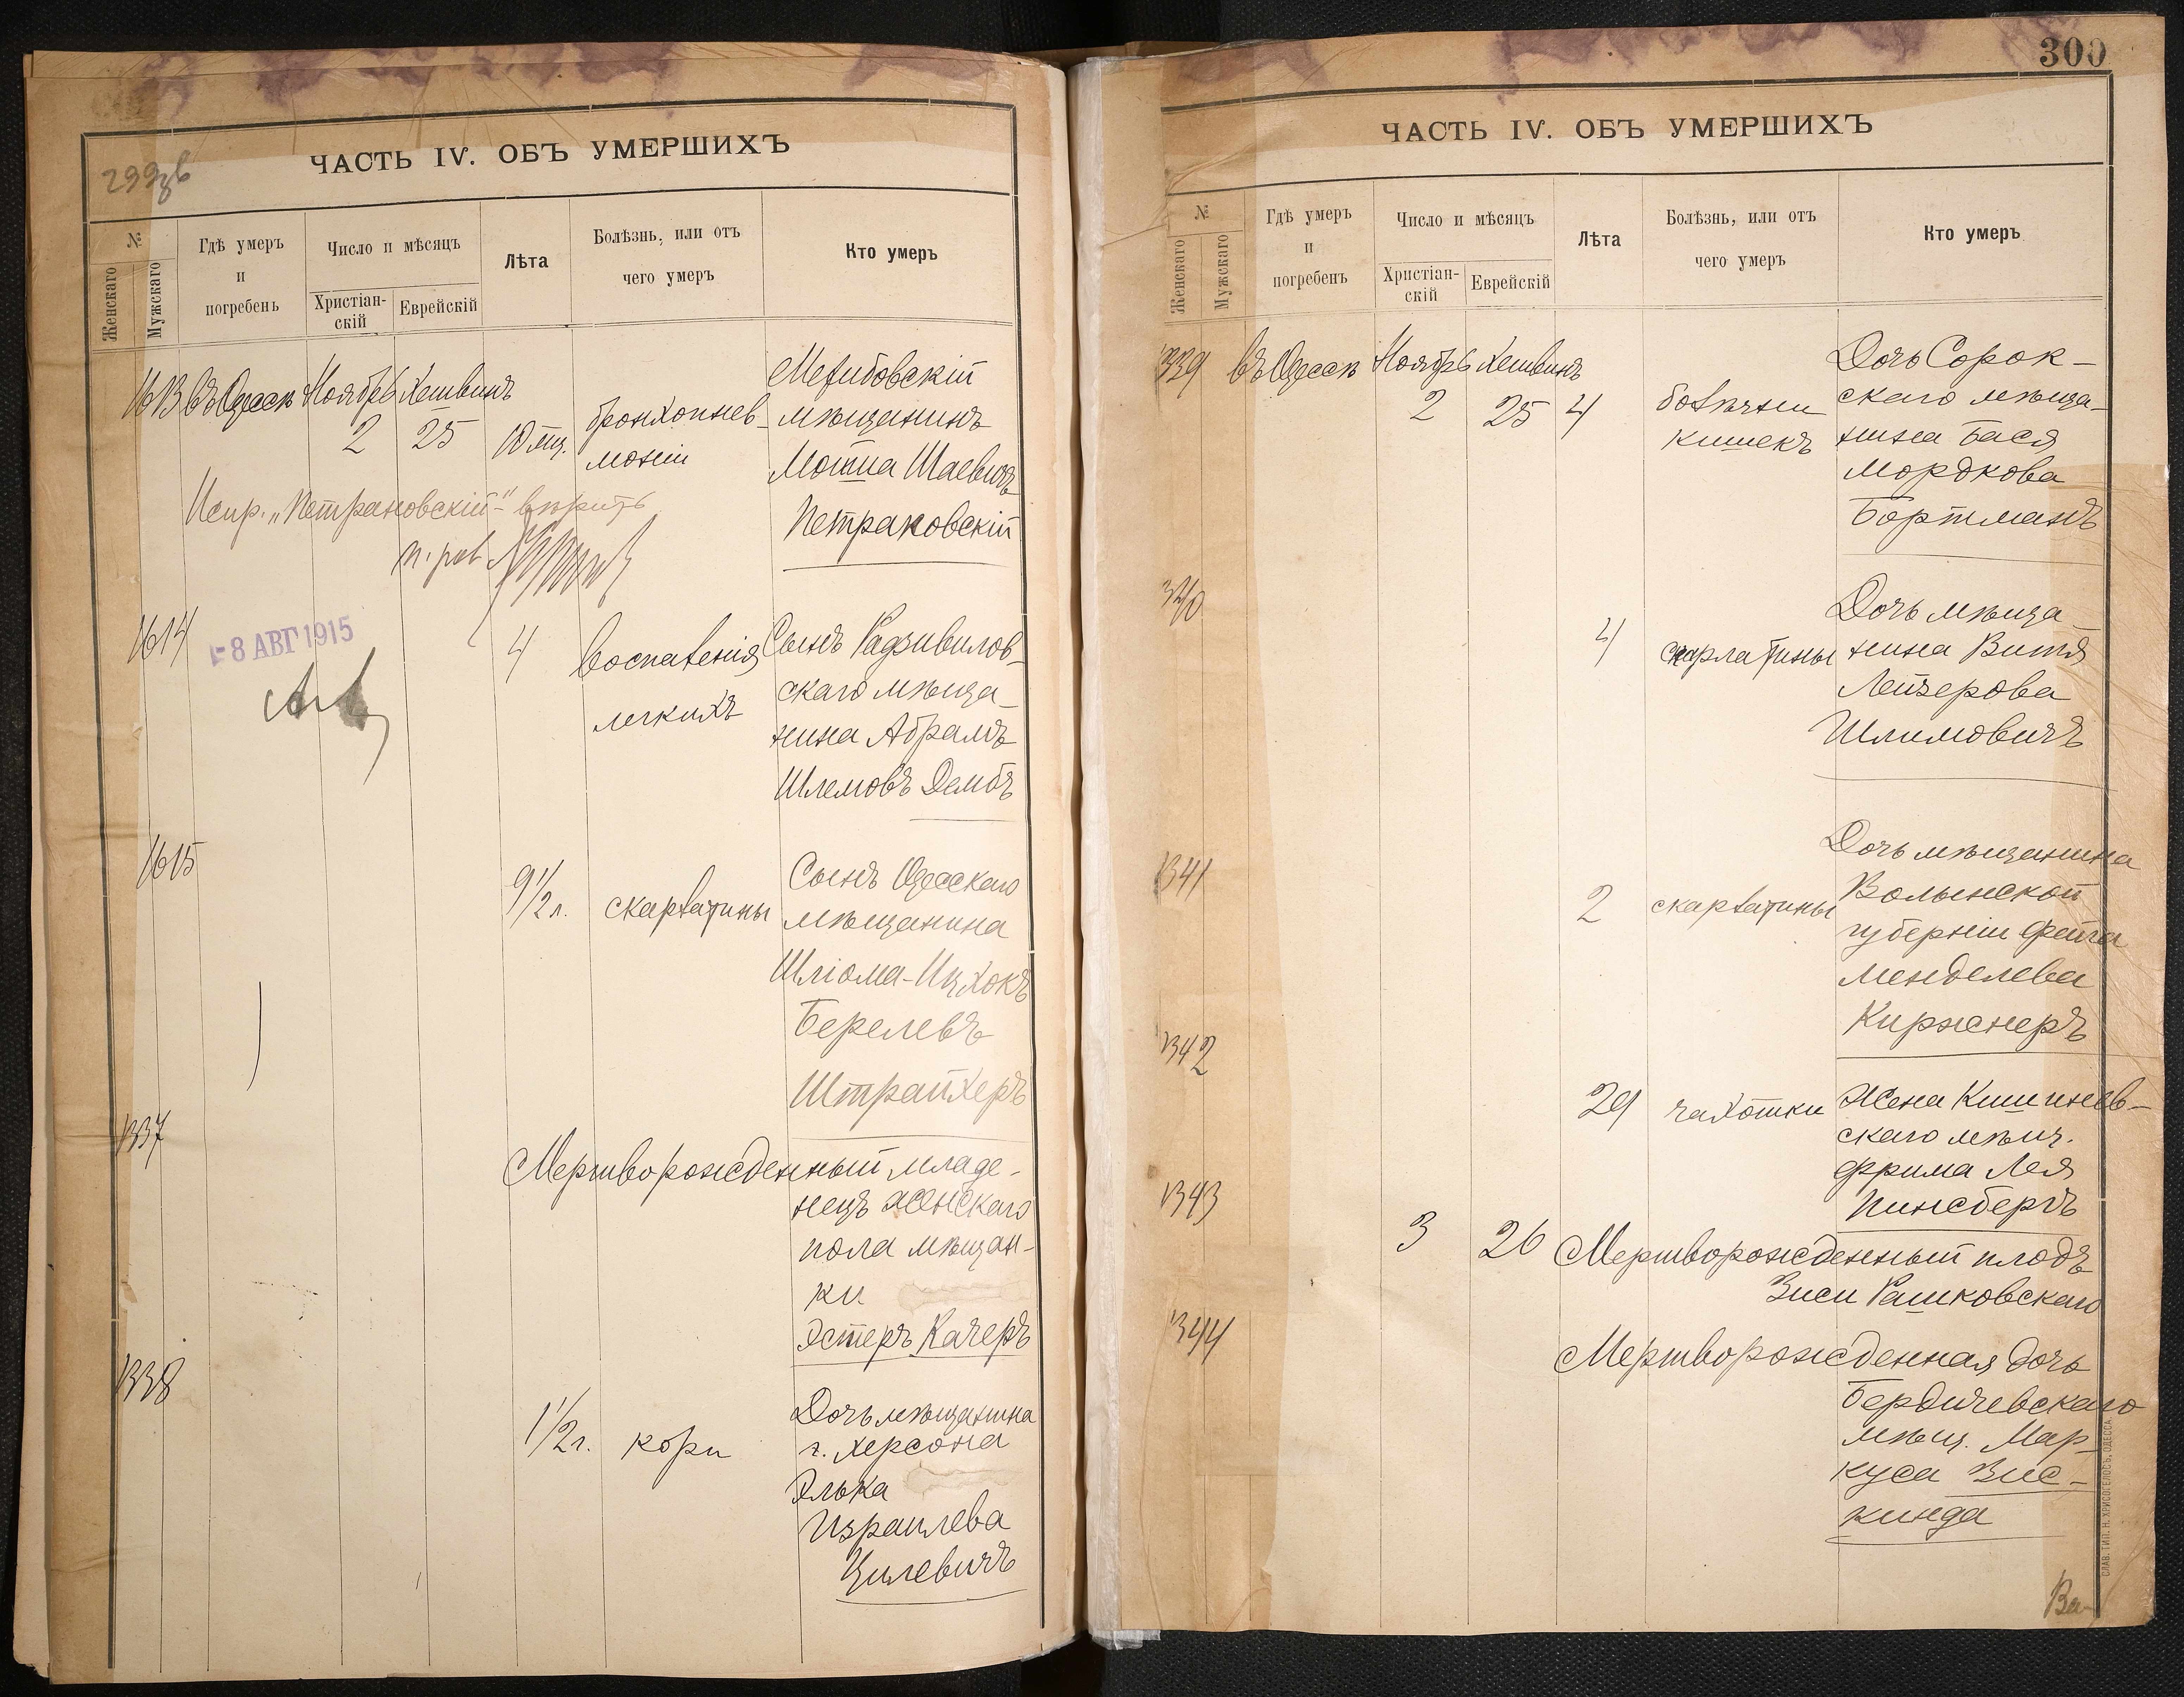 299об
ЧАСТЬ IV. ОБЪ УМЕРШИХЪ
№
Женскаго
Мужскаго
Гдѣ умеръ
и
погребенъ
Число и мѣсяцъ
Христіан-
скій
Еврейскій
Лѣта
Болѣзнь, или отъ
чего умеръ
Кто умеръ
1613 въ Одессѣ Ноябрь Хешвинъ
2 25 10 мц.
бронхопнев-
моніи
Межибовскій
мѣщанинъ
Мотпа Шаевичъ
Петраковскій
Испр. „Петрановскій" вѣрить
п. рав
1614
- 8 АВГ 1915
4 воспаленія
легкихъ
Сынъ Радзивилов-
скаго мѣща-
нина Абрамъ
Шлемовъ Дембъ
1615
9 1/2 г. скарлатины
Сынъ Одесскаго
мѣщанина
Шліома-Ицхокъ
Берелевъ
Штрайхеръ
1337
Мертворожденный младе-
нецъ женскаго
пола мѣщан-
ки
Эстеръ Качеръ
1338
1 1/2 г. кори
Дочь мѣщанина
г. Херсона
Элька
Израилева
Цилевичъ
300
ЧАСТЬ IV. ОБЪ УМЕРШИХЪ
№
Женскаго
Мужскаго
Гдѣ умеръ
и
погребенъ
Число и мѣсяцъ
Христіан-
скій
Еврейскій
Лѣта
Болѣзнь, или отъ
чего умеръ
Кто умеръ
1339 въ Одессѣ Ноябрь Хешвинъ
2 25 4
болѣзни
кишекъ
Дочь Сорок-
скаго мѣща-
нина Бася
Мордкова
Бортманъ
1340
4 скарлатины
Дочь мѣща-
нина Витя
Лейзерова
Шлимовичъ
1341
2 скарлатины
Дочь мѣщанина
Волынской
губерніи Фейга
Менделева
Киржнеръ
1342
29 чахотки
Жена Кишинев-
скаго мѣщ.
Фрима Лея
Гинсбергъ
1343
3 26 Мертворожденный плодъ
Зиси Рашковскаго
1344
Мертворожденная дочь
Бердичевскаго
мѣщ. Мар-
куса Зис-
кинда
СЛАВ. ТИП. Н. ХРИСОГЕЛОСЪ, ОДЕССА.